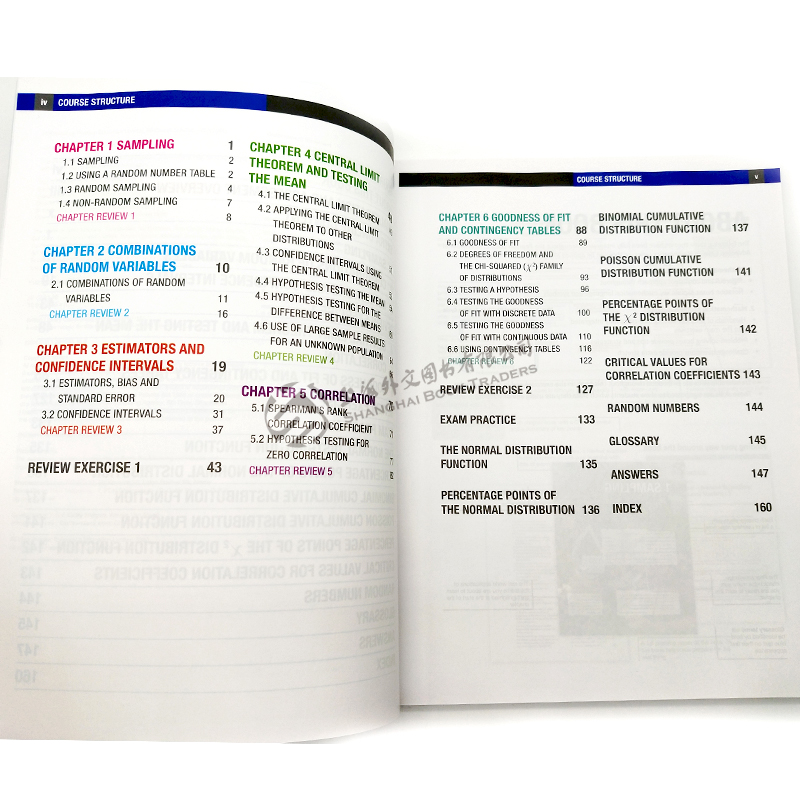 iv COURSE STRUCTURE
CHAPTER 1 SAMPLING 1
1.1 SAMPLING 2
1.2 USING A RANDOM NUMBER TABLE 2
1.3 RANDOM SAMPLING 4
1.4 NON-RANDOM SAMPLING 7
CHAPTER REVIEW 1 8
CHAPTER 2 COMBINATIONS
OF RANDOM VARIABLES 10
2.1 COMBINATIONS OF RANDOM
VARIABLES 11
CHAPTER REVIEW 2 16
CHAPTER 3 ESTIMATORS AND
CONFIDENCE INTERVALS 19
3.1 ESTIMATORS, BIAS AND
STANDARD ERROR 20
3.2 CONFIDENCE INTERVALS 31
CHAPTER REVIEW 3 37
REVIEW EXERCISE 1 43
CHAPTER 4 CENTRAL LIMIT
THEOREM AND TESTING
THE MEAN
4.1 THE CENTRAL LIMIT THEOREM
4.2 APPLYING THE CENTRAL LIMIT
THEOREM TO OTHER
DISTRIBUTIONS
4.3 CONFIDENCE INTERVALS USING
THE CENTRAL LIMIT THEOREM
4.4 HYPOTHESIS TESTING THE MEAN
4.5 HYPOTHESIS TESTING FOR THE
DIFFERENCE BETWEEN MEANS
4.6 USE OF LARGE SAMPLE RESULTS
FOR AN UNKNOWN POPULATION
CHAPTER REVIEW 4
CHAPTER 5 CORRELATION
5.1 SPEARMAN'S RANK
CORRELATION COEFFICIENT
5.2 HYPOTHESIS TESTING FOR
ZERO CORRELATION
CHAPTER REVIEW 5
COURSE STRUCTURE v
CHAPTER 6 GOODNESS OF FIT
AND CONTINGENCY TABLES 88
6.1 GOODNESS OF FIT 89
6.2 DEGREES OF FREEDOM AND
THE CHI-SQUARED (χ²) FAMILY
OF DISTRIBUTIONS 93
6.3 TESTING A HYPOTHESIS 96
6.4 TESTING THE GOODNESS
OF FIT WITH DISCRETE DATA 100
6.5 TESTING THE GOODNESS
OF FIT WITH CONTINUOUS DATA 110
6.6 USING CONTINGENCY TABLES 116
CHAPTER REVIEW 6 122
REVIEW EXERCISE 2 127
EXAM PRACTICE 133
THE NORMAL DISTRIBUTION
FUNCTION 135
PERCENTAGE POINTS OF
THE NORMAL DISTRIBUTION 136
BINOMIAL CUMULATIVE
DISTRIBUTION FUNCTION 137
POISSON CUMULATIVE
DISTRIBUTION FUNCTION 141
PERCENTAGE POINTS OF
THE χ² DISTRIBUTION
FUNCTION 142
CRITICAL VALUES FOR
CORRELATION COEFFICIENTS 143
RANDOM NUMBERS 144
GLOSSARY 145
ANSWERS 147
INDEX 160
上海外文图书有限公司
SHANGHAI BOOK TRADERS